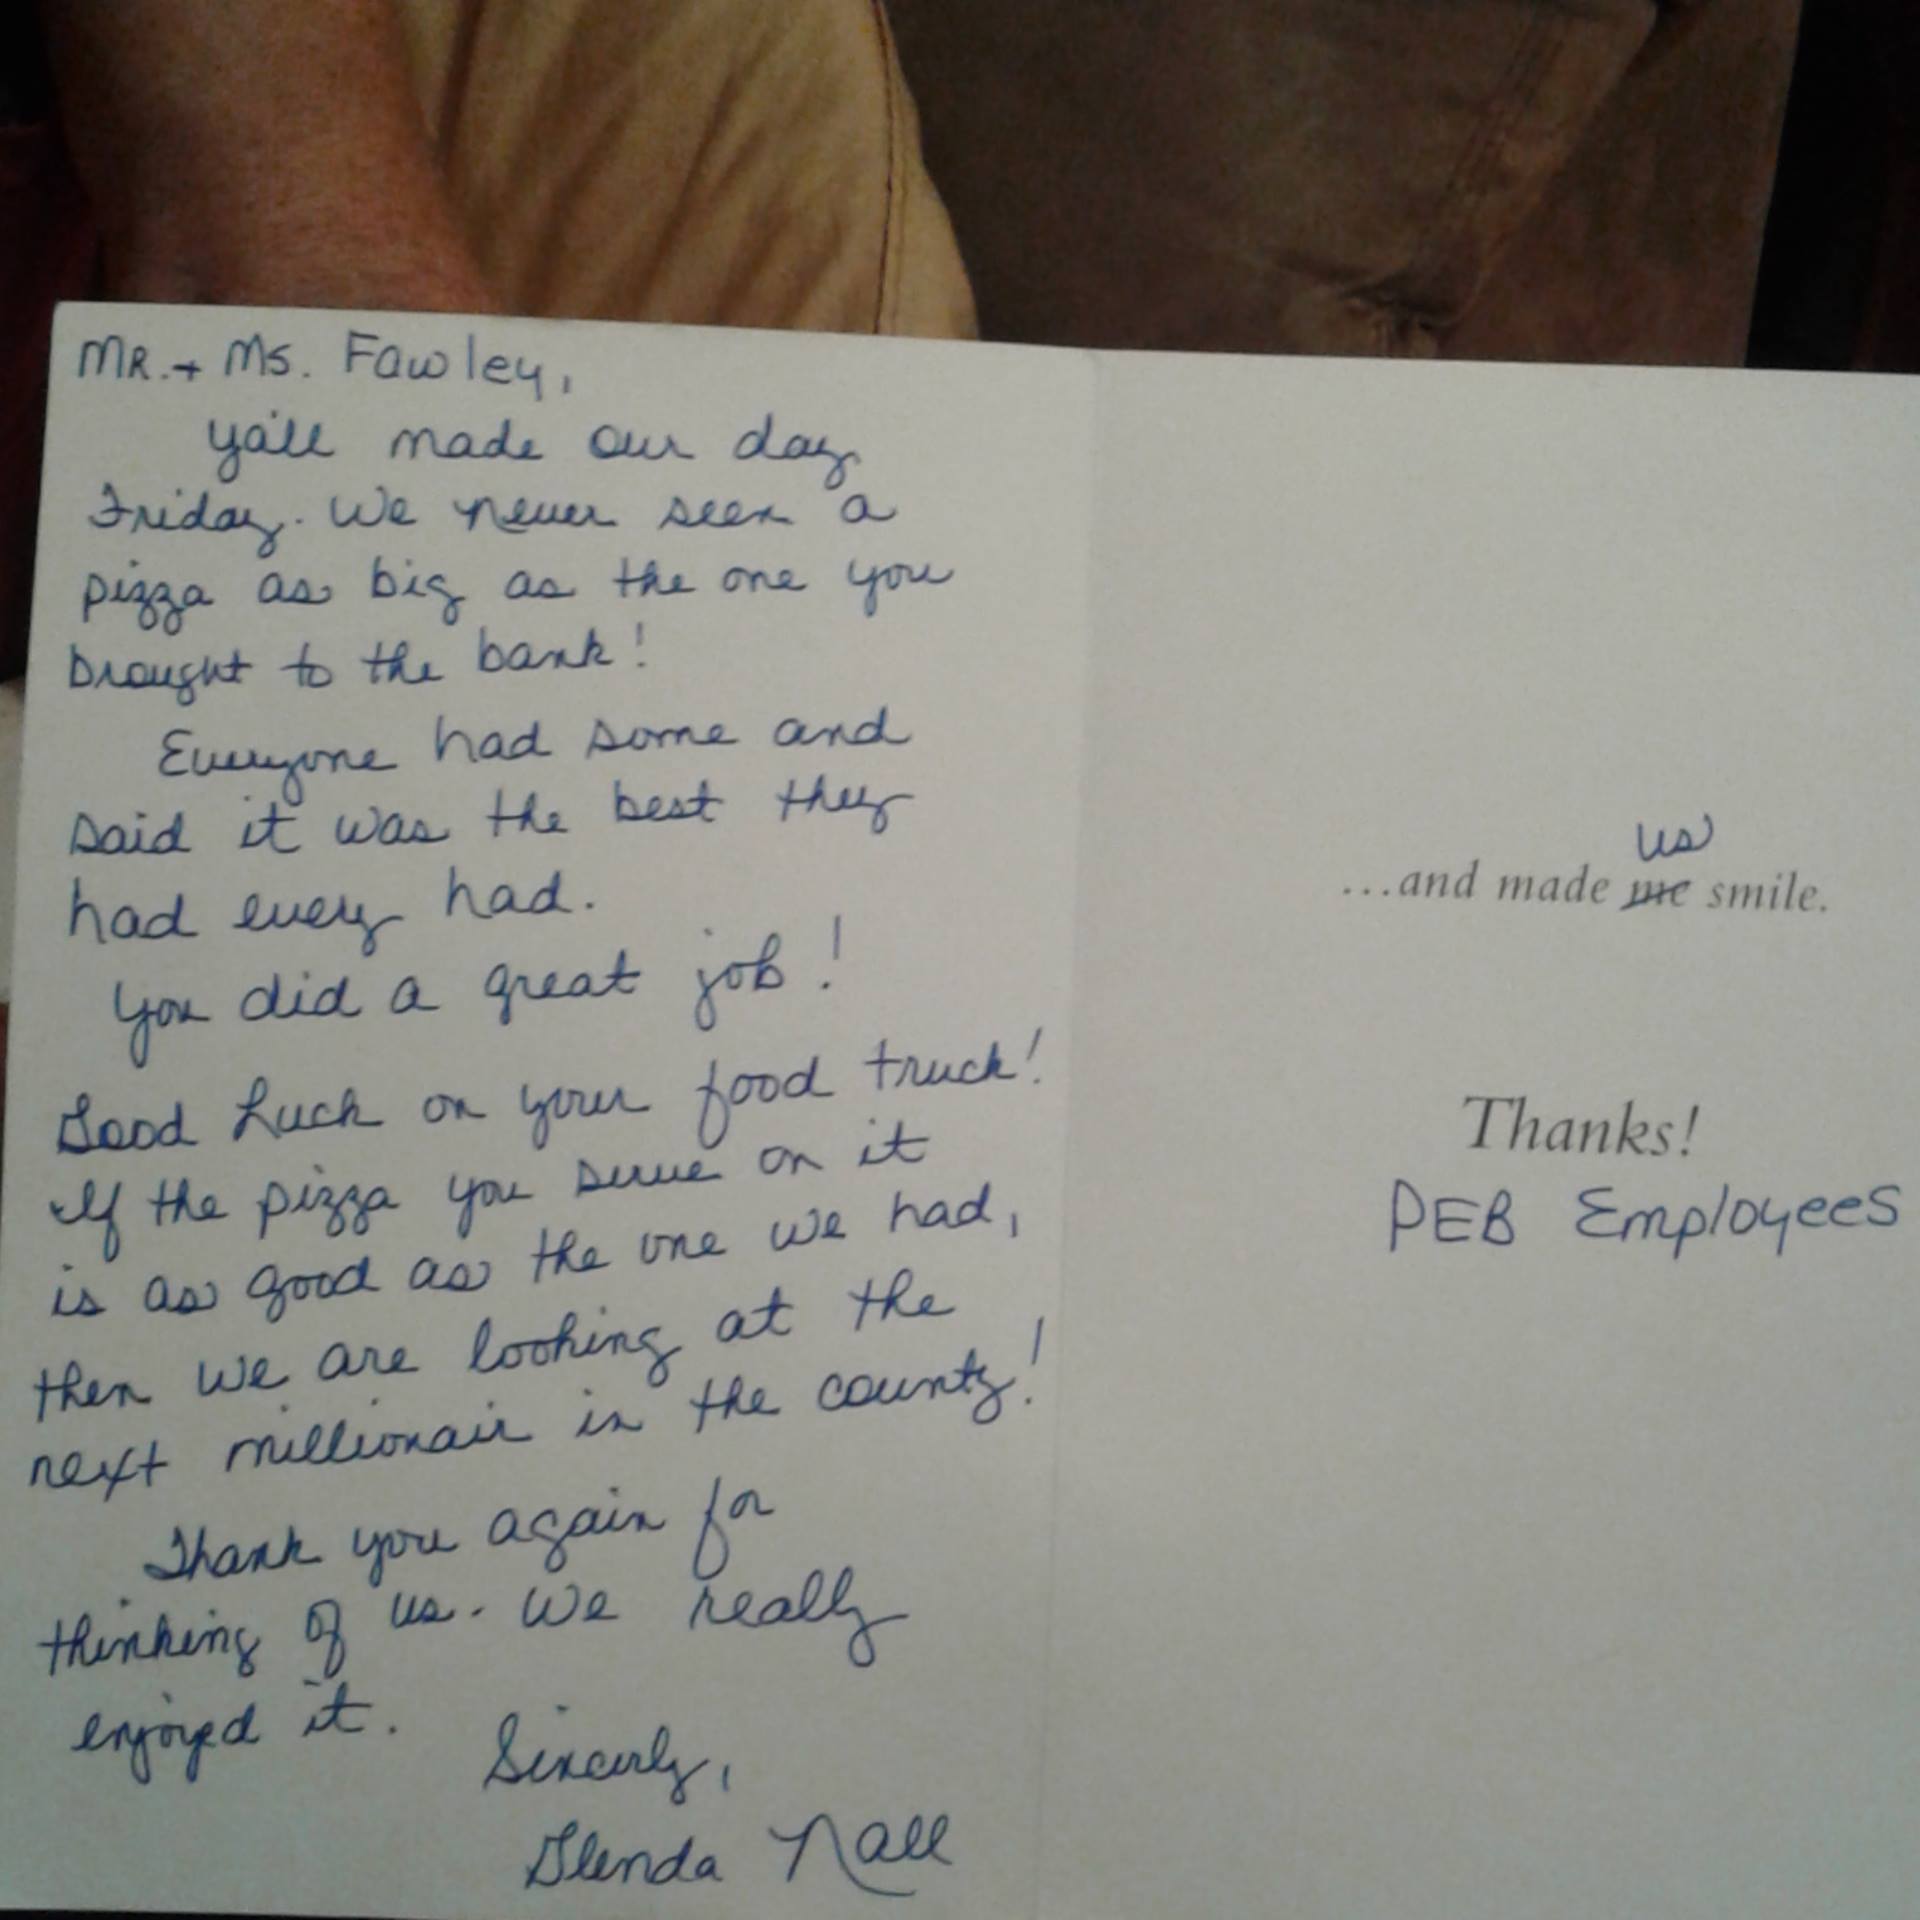 MR. + Ms. Fawley,
ya'll made our day
Friday. We never seen a
pizza as big as the one you
brought to the bank!
Everyone had some and
said it was the best they
had every had.
You did a great job!
Good Luck on your food truck!
If the pizza you serve on it
is as good as the one we had,
then we are looking at the
next millionair in the county!
Thank you again for
thinking of us. We really
enjoyed it.
Sincerly,
Glenda Nall
us
...and made me smile.
Thanks!
PEB Employees